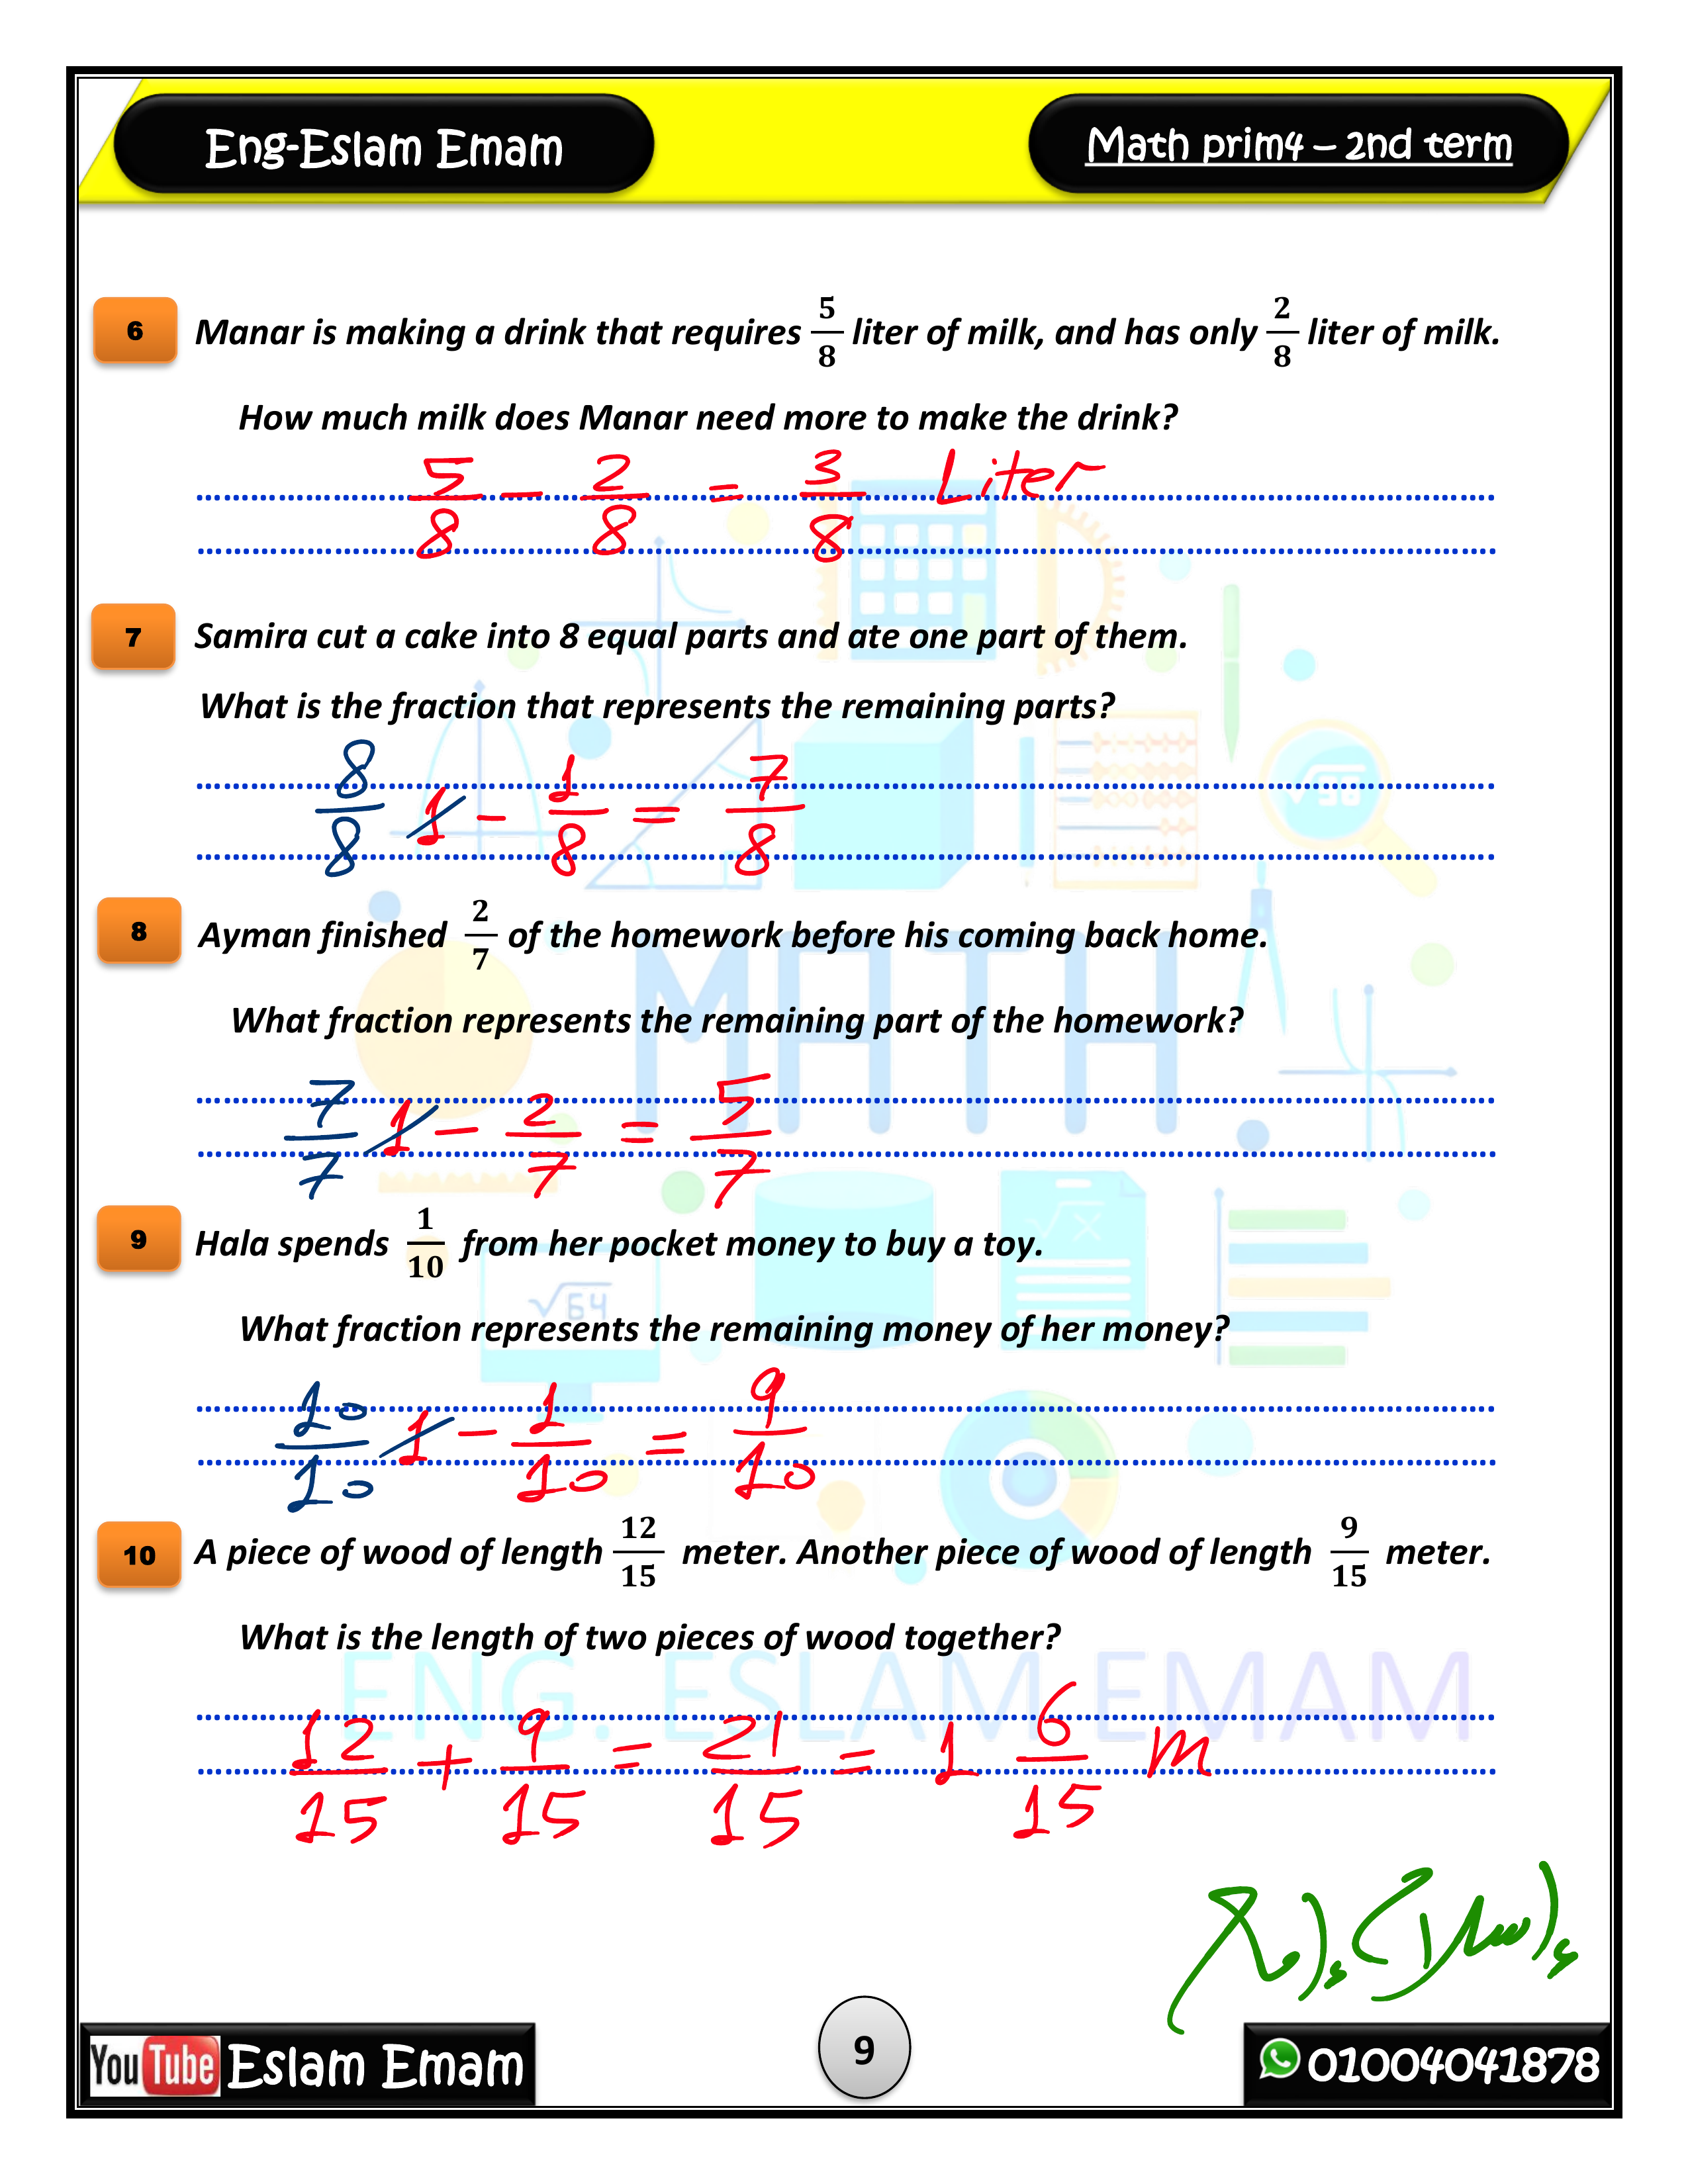 Eng-Eslam Emam
Math prim4 – 2nd term
6 Manar is making a drink that requires 5/8 liter of milk, and has only 2/8 liter of milk.
How much milk does Manar need more to make the drink?
5/8 - 2/8 = 3/8 Liter
7 Samira cut a cake into 8 equal parts and ate one part of them.
What is the fraction that represents the remaining parts?
8/8 1 - 1/8 = 7/8
8 Ayman finished 2/7 of the homework before his coming back home.
What fraction represents the remaining part of the homework?
7/7 1 - 2/7 = 5/7
MATH
9 Hala spends 1/10 from her pocket money to buy a toy.
√64
√x
What fraction represents the remaining money of her money?
10/10 1 - 1/10 = 9/10
10 A piece of wood of length 12/15 meter. Another piece of wood of length 9/15 meter.
What is the length of two pieces of wood together?
ENG. ESLAM EMAM
12/15 + 9/15 = 21/15 = 1 6/15 m
YouTube Eslam Emam
9
01004041878